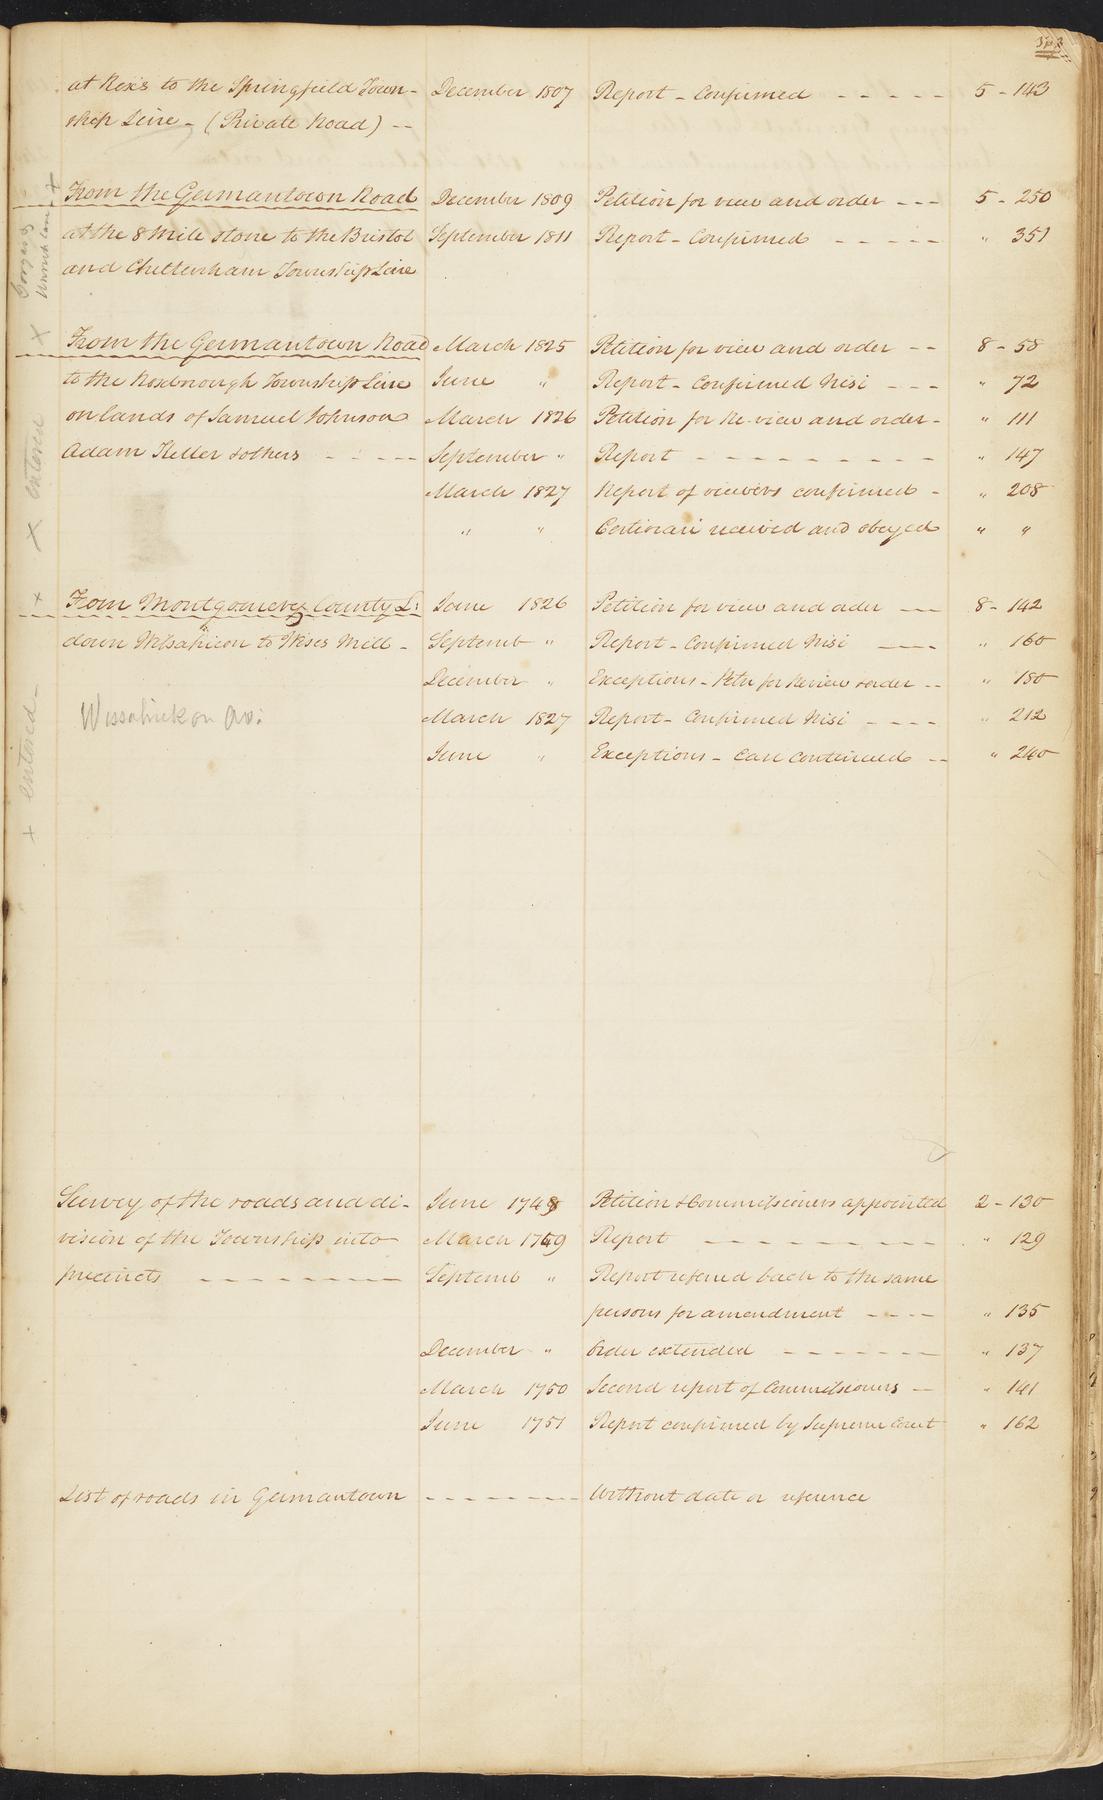 at Rex's to the Springfield Town- December 1807 Report - Confirmed - - - - - 5 - 143
ship Line - (Private Road) --
From the Germantown Road December 1809 Petition for view and order - - - 5 - 250
at the 8 Mile stone to the Bristol September 1811 Report - Confirmed - - - - - " 351
and Cheltenham Township Line
From the Germantown Road March 1825 Petition for view and order -- 8 - 58
to the Roxborough Township Line June " Report - Confirmed Nisi - - - " 72
on lands of Samuel Johnson March 1826 Petition for Re-view and order - " 111
Adam Keller & others - - - - - September " Report - - - - - - - - - " 147
March 1827 Report of viewers confirmed - " 208
" " Certiorari received and obeyed " "
From Montgomery County L: June 1826 Petition for view and order --- 8 - 142
down to Wises Mill - Septemb " Report - Confirmed Nisi ---- " 160
December " Exceptions - Petn for Review & order -- " 180
Wissahickon Av: March 1827 Report - Confirmed Nisi - - - - " 212
June " Exceptions - Case Continued -- " 240
+ entered
X entered
Survey of the roads and di- June 1748 Petition & Commissioners appointed 2 - 130
vision of the Township into March 1749 Report - - - - - - - - - " 129
precincts - - - - - - - - - Septemb " Report referred back to the same
persons for amendment - - - - " 135
December " Order extended - - - - - - - " 137
March 1750 Second report of Commissioners - " 141
June 1751 Report confirmed by Supreme Court " 162
List of roads in Germantown - - - - - - - - Without date or reference